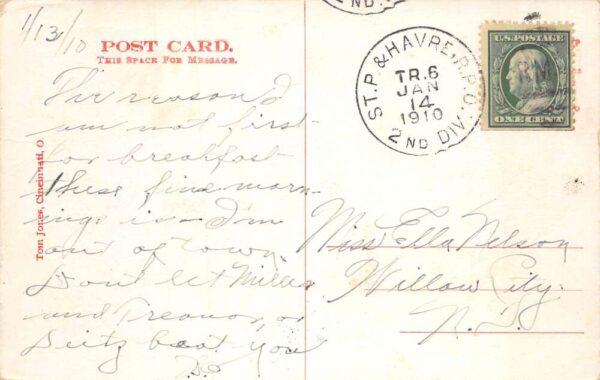 1/13/10
POST CARD.
THIS SPACE FOR MESSAGE.
The reason I
am not first
for breakfast
these fine morn-
ings is - I'm
out of town.
Don't let Miller
and Treanor, or
Deitz beat you
Tom Jones, Cincinnati, O.
2ND
ST. P. & HAVRE. R.P.O.
TR. 6
JAN
14
1910
2ND DIV.
U.S. POSTAGE
ONE CENT
Miss Ella Nelson
Willow City.
N. D.